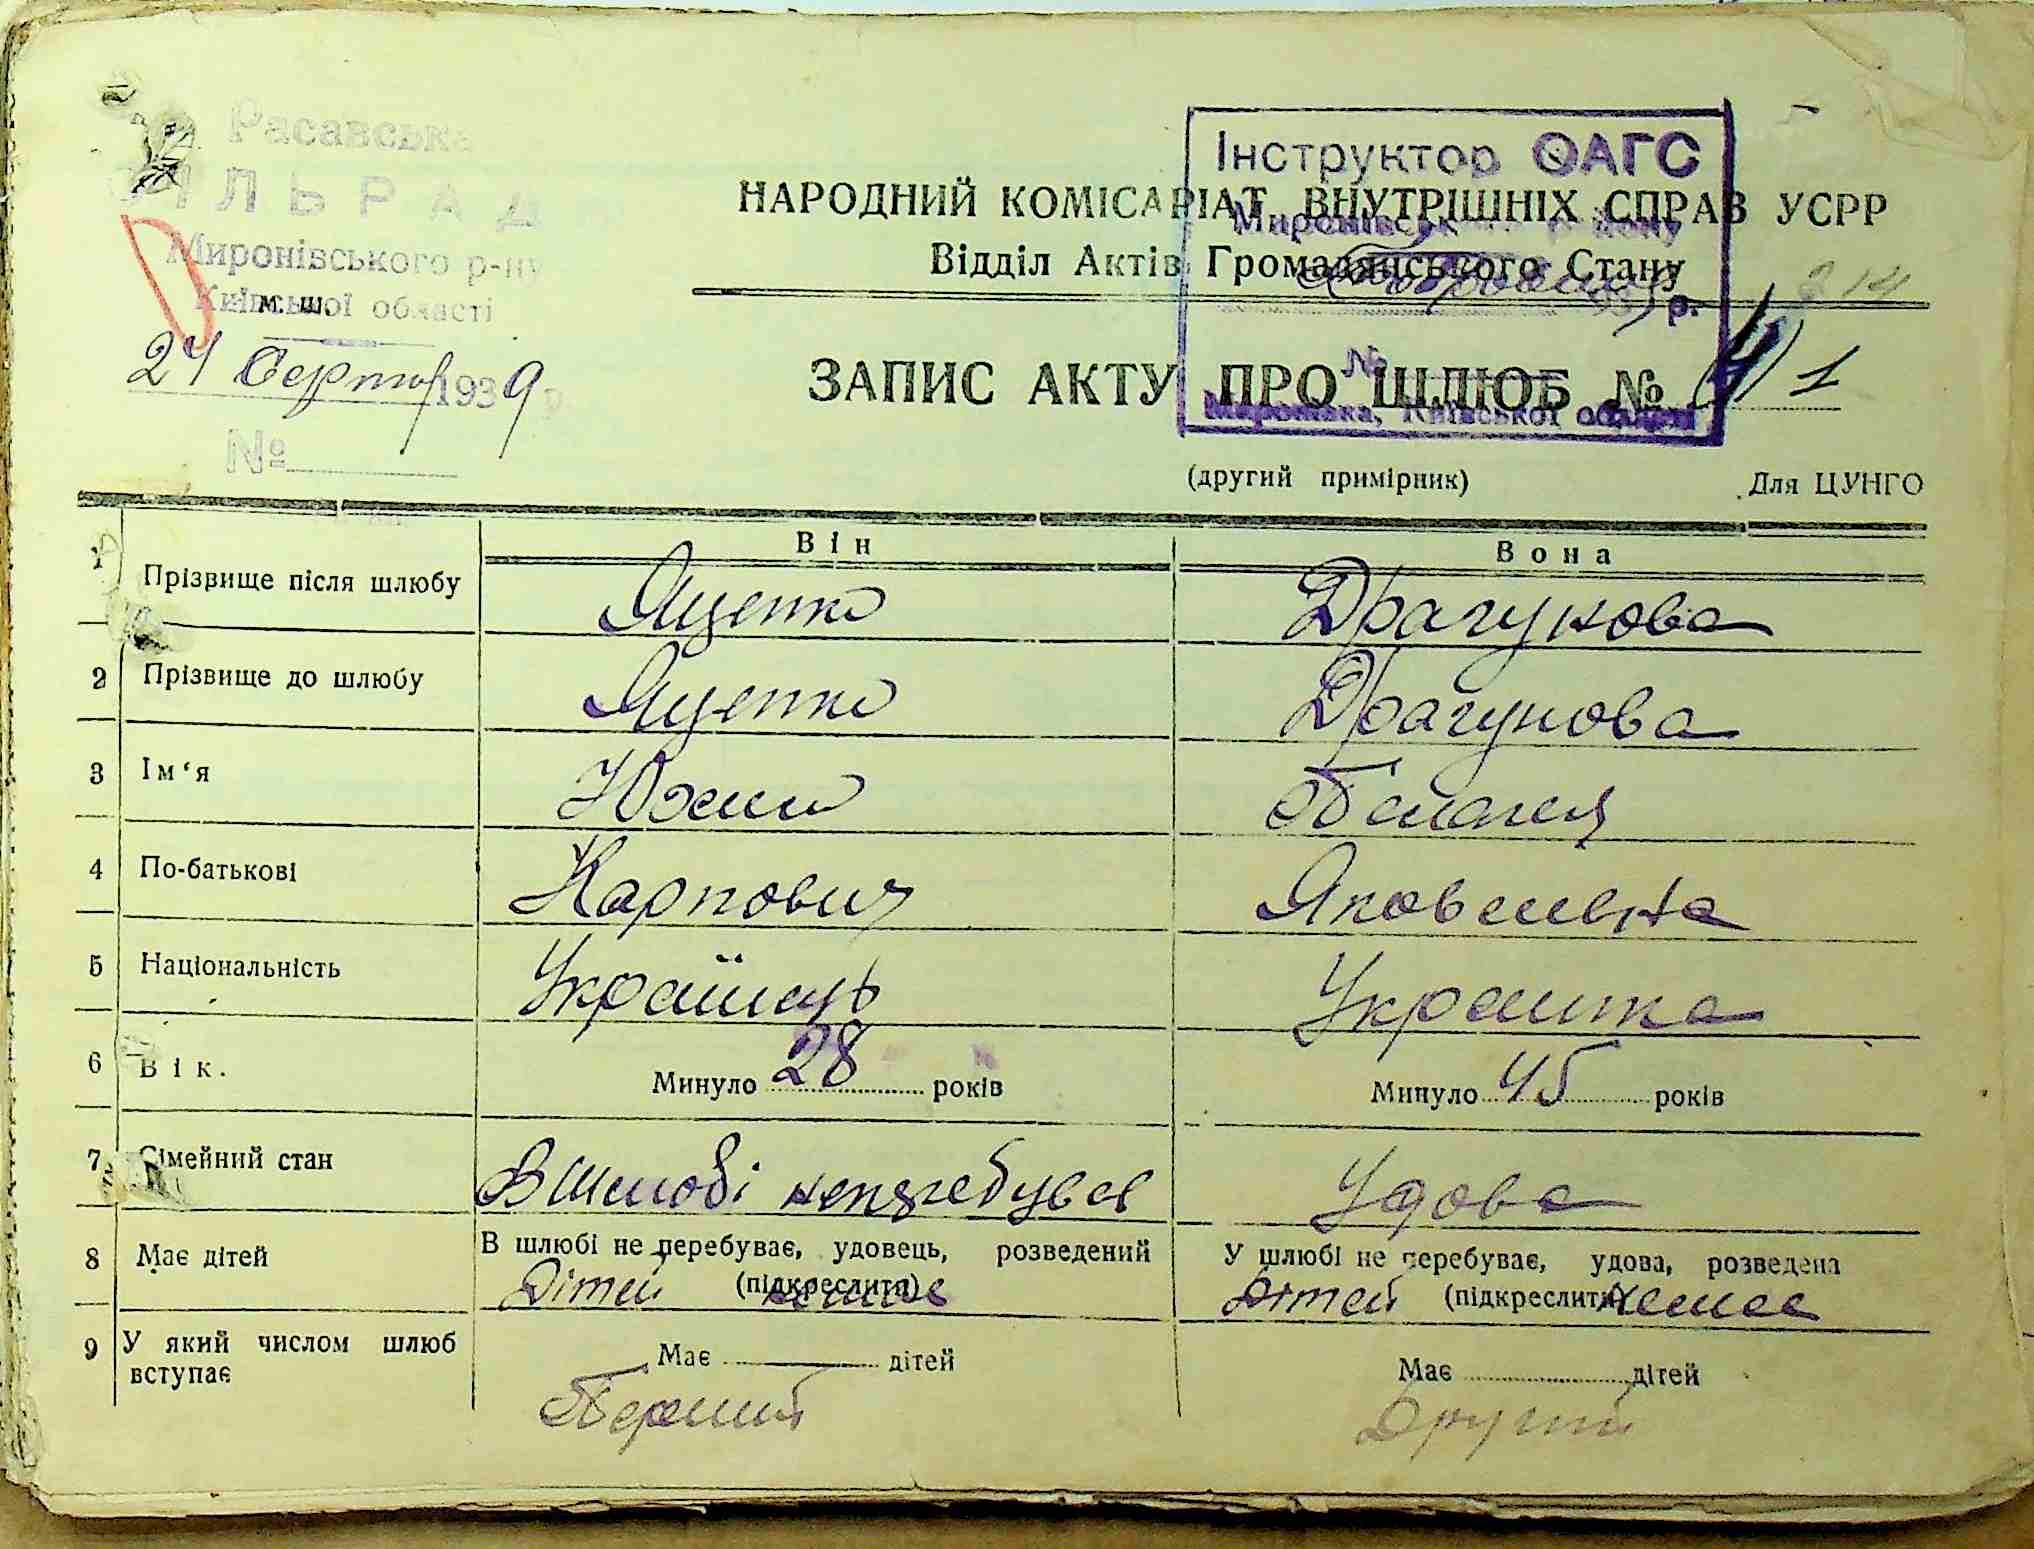 Расавська
СІЛЬРАДА
Миронівського р-ну
Київської області
м. ш.
24 Серпня 1939 р.
№
Інструктор ОАГС
Миронівського району
р.
№
Миронівка, Київської області
НАРОДНИЙ КОМІСАРІАТ ВНУТРІШНІХ СПРАВ УСРР
Відділ Актів Громадянського Стану
214
ЗАПИС АКТУ ПРО ШЛЮБ № 1
(другий примірник) Для ЦУНГО
Він Вона
1 Прізвище після шлюбу Яценко Драгунова
2 Прізвище до шлюбу Яценко Драгунова
3 Ім‘я Юхим Пелагея
4 По-батькові Карпович Яковлевна
5 Національність Українець Украинка
6 Вік. Минуло 28 років Минуло 45 років
7 Сімейний стан В Шлюбі неперебував Удова
8 Має дітей В шлюбі не перебуває, удовець, розведений У шлюбі не перебуває, удова, розведена
Дітей (підкреслити) немає Дітей (підкреслити) немає
9 У який числом шлюб вступає Має дітей Має дітей
Перший Другий